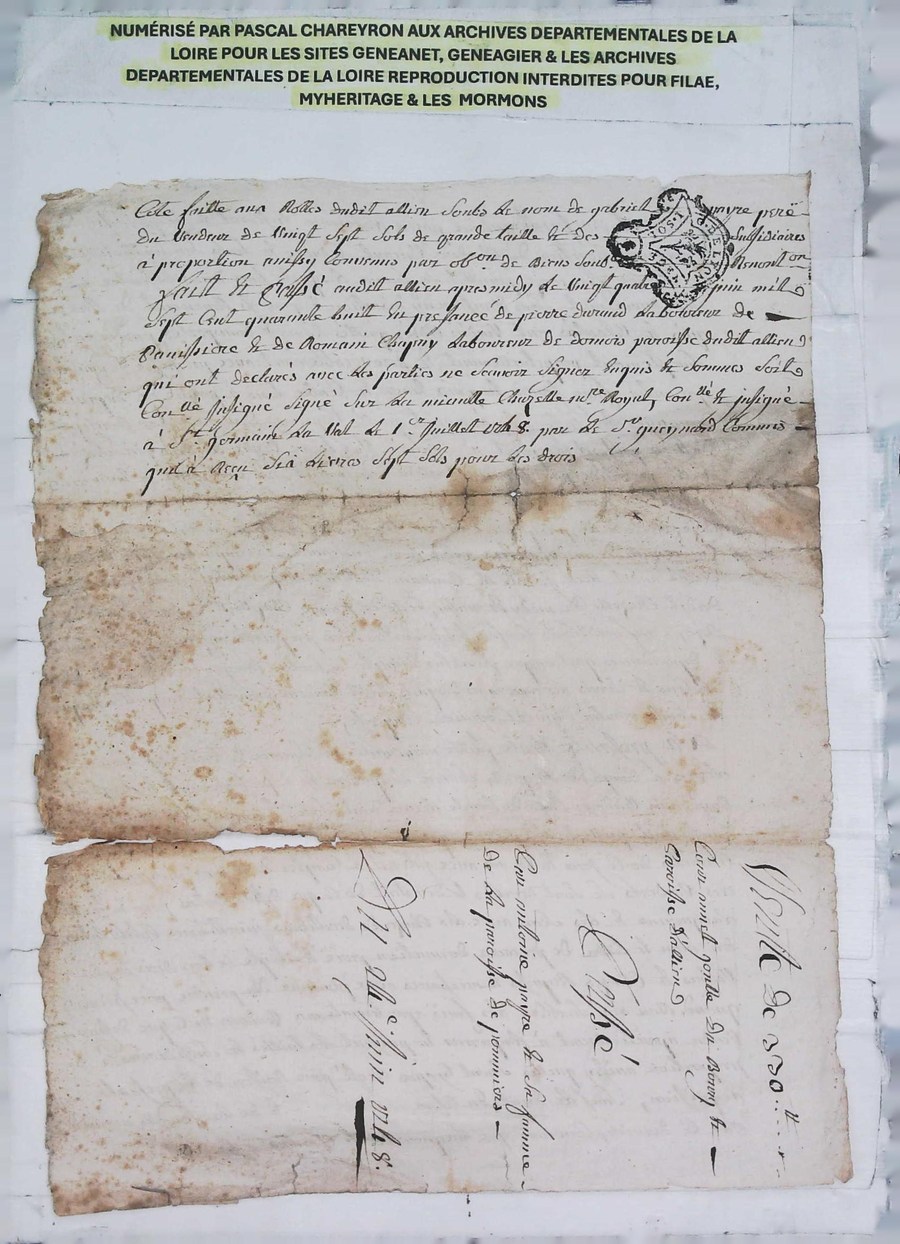 NUMÉRISÉ PAR PASCAL CHAREYRON AUX ARCHIVES DEPARTEMENTALES DE LA
LOIRE POUR LES SITES GENEANET, GENEAGIER & LES ARCHIVES
DEPARTEMENTALES DE LA LOIRE REPRODUCTION INTERDITES POUR FILAE,
MYHERITAGE & LES MORMONS
Cote faitte aux Rolles dudit allieu soubs le nom de gabriel payre pere
du vendeur de vingt sept sols de grande taille & des subsidiaires
à proportion ainssy convenus par ob.on de Biens soub. Renont.on
fait & passé audit allieu apres midy le vingt quatre juin mil
sept cent quarente huit en presance de pierre durand laboureur de
panissiere & de Romain Chapuy laboureur de donois paroisse dudit allieu
qui ont declarés avec les parties ne scavoir signer enquis & sommes soit
Con.llé insigné signé sur la minutte Chazelle no.re Royal, Con.llé & insigné
à S.t germain la val le 1.er Juillet 1748. par le S.r gueynard Commis
qui à Reçu six livres sept sols pour les drois
Vente de 330.tt
Pour annet gontte du Bourg &
Paroisse d'allieu
Passé
Par antoine payre & sa famme
de la paroisse de jommiers
Du 24.e Juin 1748.